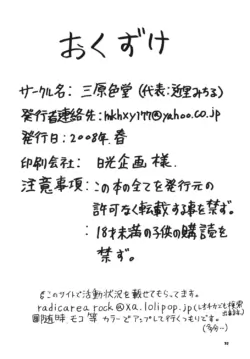 おくずけ
サークル名: 三原色堂 (代表:近里みちる)
発行者連絡先:hkhxy177@yahoo.co.jp
発行日:2008年.春
印刷会社: 日光企画 様.
注意事項:この本の全てを発行元の
許可なく転載する事を禁ず。
:18才未満の子供の購読を
禁ず。
このサイトで活動状況を載せてもらってます。
radicarea rock@xa.lolipop.jp
カラーでアップして行くつもりです。